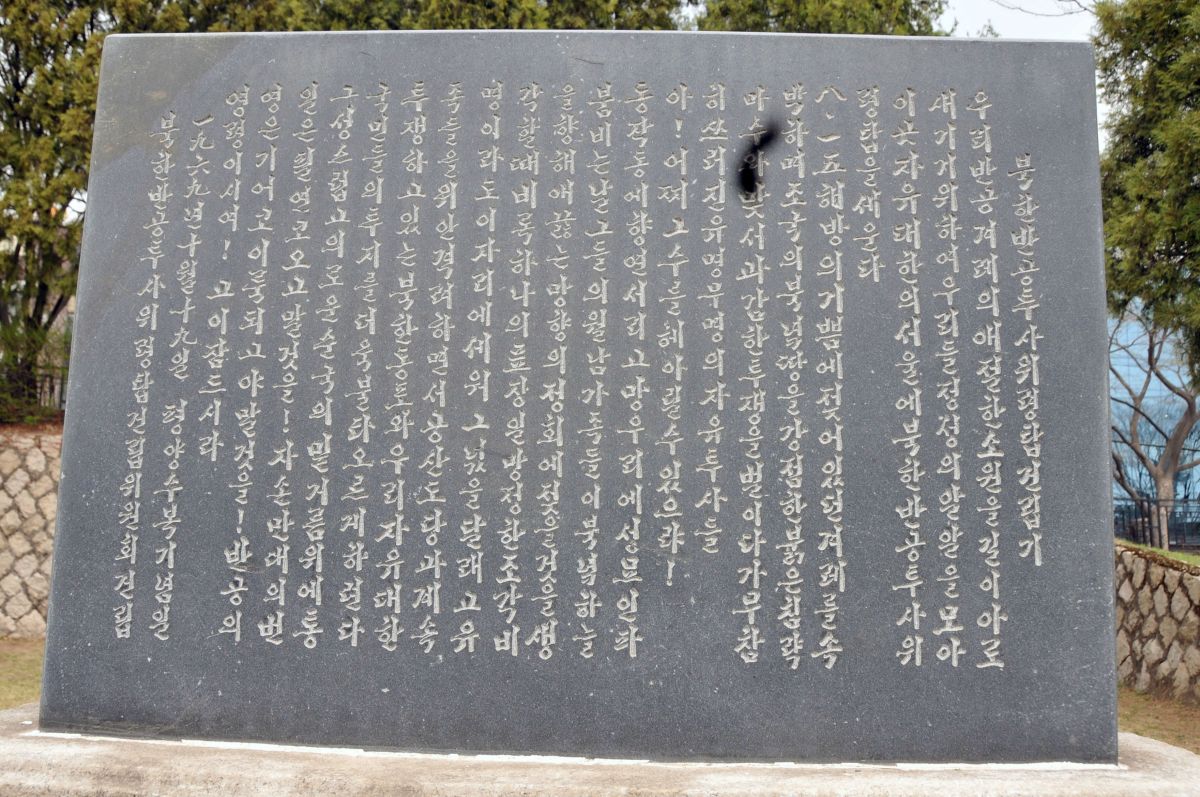 북한반공투사위령탑건립기
우리반공겨레의애절한소원을길이아로
새기기위하여우리들정성의알알을모아
이곳자유대한의서울에북한반공투사위
령탑을세운다
八·一五해방의기쁨에젖어있던겨레를속
박하며조국의북녘땅을강점한붉은침략
마수와맞서과감한투쟁을벌이다가무참
히쓰러진유명무명의자유투사들
아!어찌그수를헤아릴수있으랴!
동작동에향연서리고망우리에성묘인파
붐비는날그들의월남가족들이북녘하늘
을향해애끓는망향의정회에젖을것을생
각할때비록하나의표장일망정한조각비
명이라도이자리에세워그넋을달래고유
족들을위안격려하면서공산도당과계속
투쟁하고있는북한동포와우리자유대한
국민들의투지를더욱불타오르게하련다
그성스럽고의로운순국의밑거름위에통
일은필연코오고말것을!자손만대의번
영은기어코이룩되고야말것을!반공의
영령이시여!고이잠드시라
一九六九년十월十九일 평양수복기념일
북한반공투사위령탑건립위원회건립